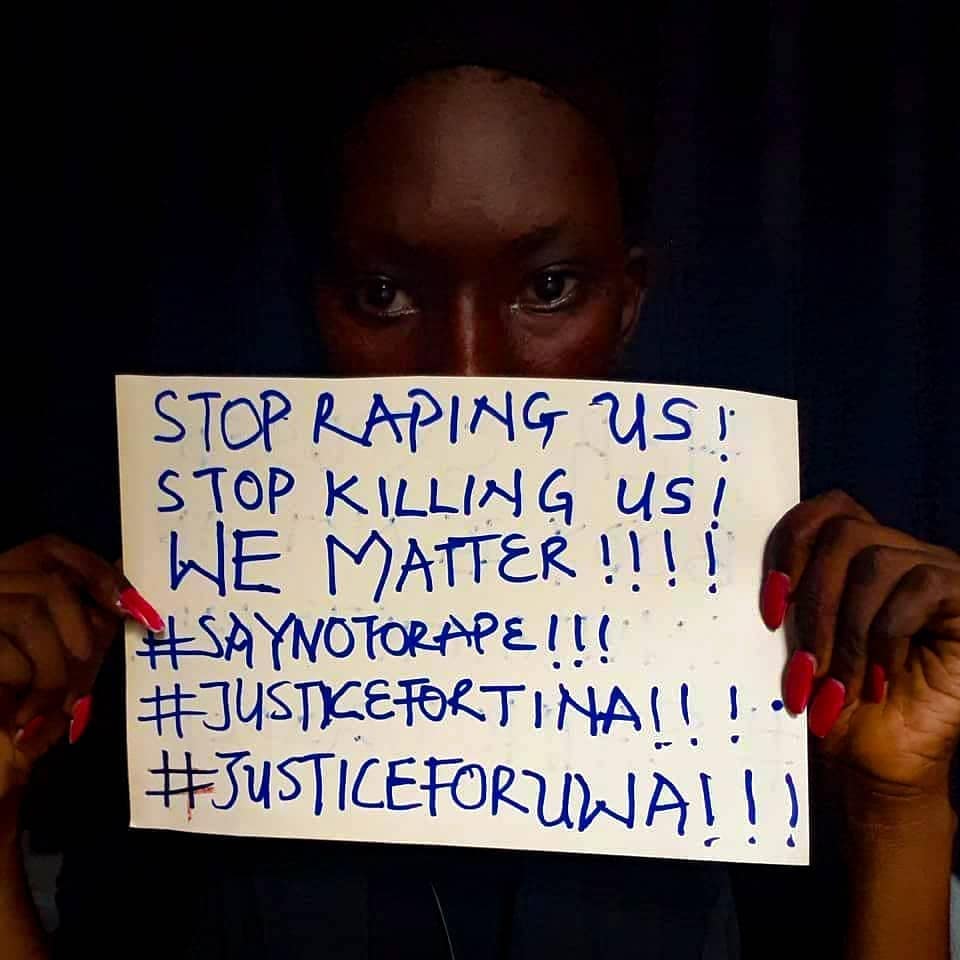 STOP RAPING US!
STOP KILLING US!
WE MATTER!!!!
#SAYNOTORAPE!!!
#JUSTICEFORTINA!!!
#JUSTICEFORUWA!!!